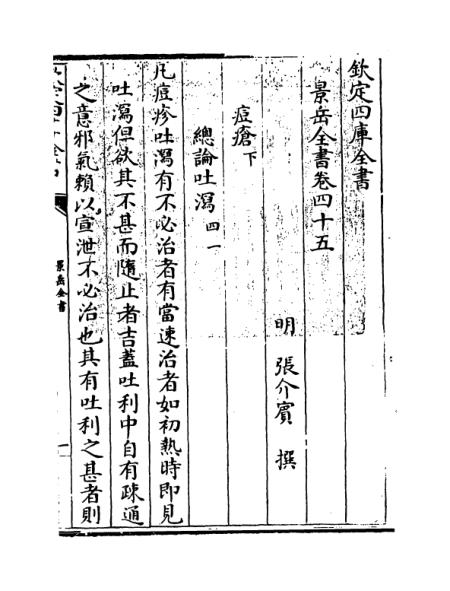 欽定四庫全書
景岳全書卷四十五
明 張介賓 撰
痘瘡下
總論吐瀉四一
凡痘疹吐瀉有不必治者有當速治者如初熱時即見
吐瀉但欲其不甚而隨止者吉蓋吐利中自有疎通
之意邪氣賴以宣泄不必治也其有吐利之甚者則
景岳全書
一